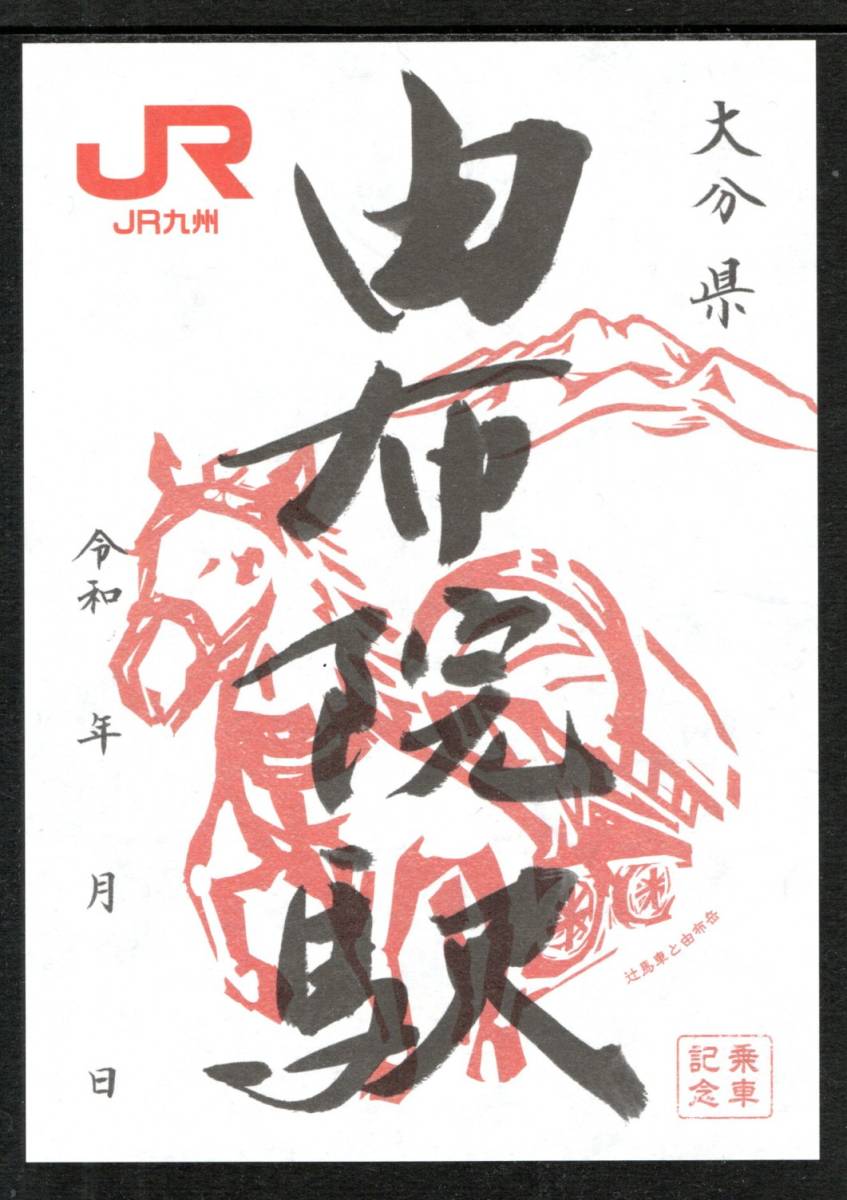 大分県
由布院駅
JR
JR九州
令和 年 月 日
辻馬車と由布岳
乗車
記念